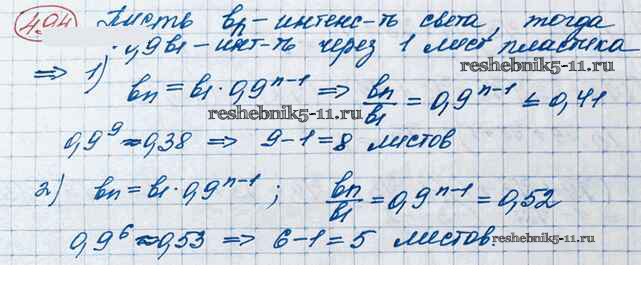 4.94 Пусть bn - интенс-ть света, тогда
0,9b1 - инт-ть через 1 лист пластика
=> 1) reshebnik5-11.ru
bn = b1 · 0,9^n-1 => bn/b1 = 0,9^n-1 ≤ 0,41
reshebnik5-11.ru
0,9^9 ≈ 0,38 => 9-1=8 листов
2) bn = b1 · 0,9^n-1 ; bn/b1 = 0,9^n-1 = 0,52
0,9^6 ≈ 0,53 => 6-1=5 листов.
reshebnik5-11.ru